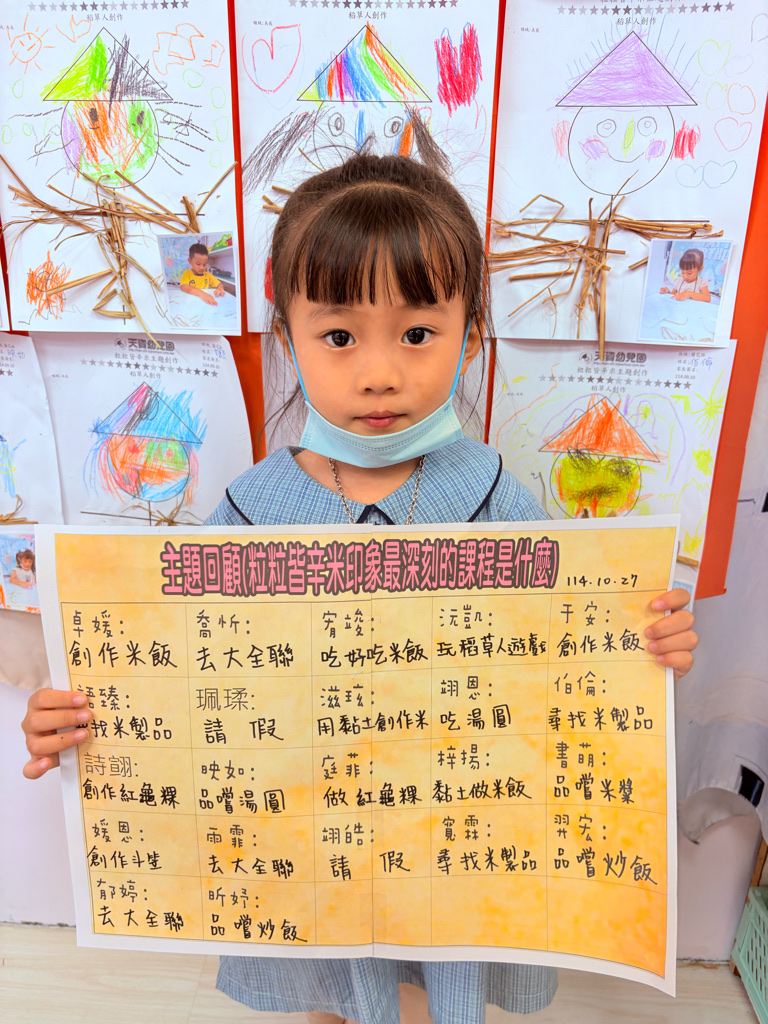 稻草人創作
稻草人創作
稻草人創作
天資幼兒園
粒粒皆辛米主題回顧
稻草人創作
天資幼兒園
粒粒皆辛米主題回顧
稻草人創作
主題回顧(粒粒皆辛米印象最深刻的課程是什麼)
114.10.27
卓媛:
創作米飯
喬忻:
去大全聯
宥竣:
吃好吃米飯
沅凱:
玩稻草人遊戲
于安:
創作米飯
語臻:
尋找米製品
珮瑈:
請假
滋玹:
用黏土創作米
翊恩:
吃湯圓
伯倫:
尋找米製品
詩翩:
創作紅龜粿
映如:
品嚐湯圓
庭菲:
做紅龜粿
梓揚:
黏土做米飯
書萌:
品嚐米漿
媛恩:
創作斗笠
雨霏:
去大全聯
翊皓:
請假
寬霖:
尋找米製品
羿宏:
品嚐炒飯
郁婷:
去大全聯
昕妤:
品嚐炒飯